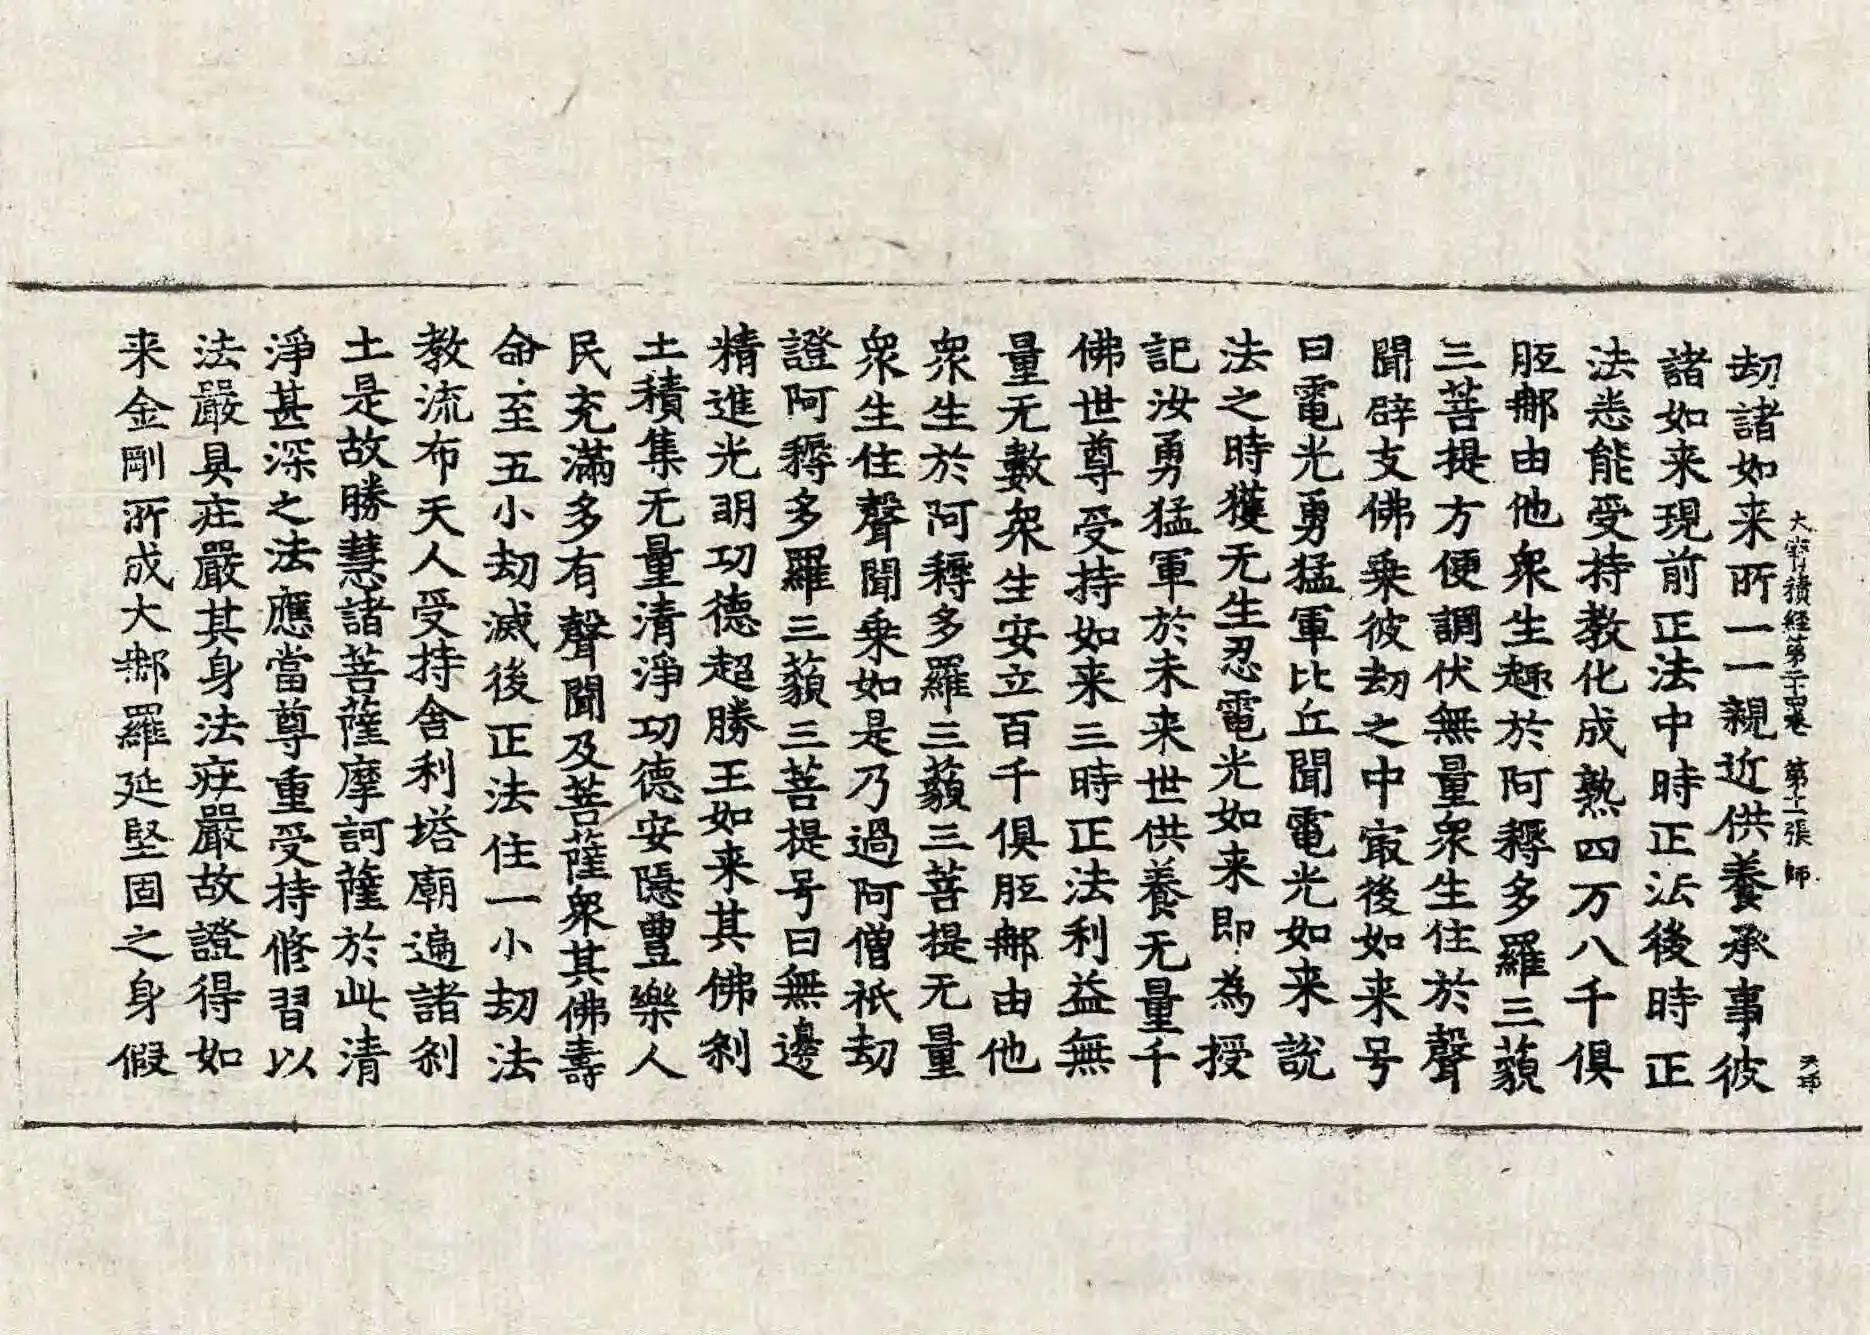 大寳積経第二十四卷 第十一張 師 火師
劫諸如来所一一親近供養承事彼
諸如来現前正法中時正法後時正
法悉能受持教化成熟四万八千俱
胝那由他衆生趣於阿耨多羅三藐
三菩提方便調伏無量衆生住於聲
聞辟支佛乗彼劫之中㝡後如来号
曰電光勇猛軍比丘聞電光如来説
法之時獲无生忍電光如来即為授
記汝勇猛軍於未来世供養无量千
佛世尊受持如来三時正法利益無
量无數衆生安立百千俱胝那由他
衆生於阿耨多羅三藐三菩提无量
衆生住聲聞乗如是乃過阿僧祇劫
證阿耨多羅三藐三菩提号曰無邊
精進光明功德超勝王如来其佛刹
土積集无量清淨功德安隱豊樂人
民充滿多有聲聞及菩薩衆其佛壽
命至五小劫滅後正法住一小劫法
教流布天人受持舎利塔廟遍諸刹
土是故勝慧諸菩薩摩訶薩於此清
淨甚深之法應當尊重受持修習以
法嚴具庄嚴其身法庄嚴故證得如
来金剛所成大那羅延堅固之身假